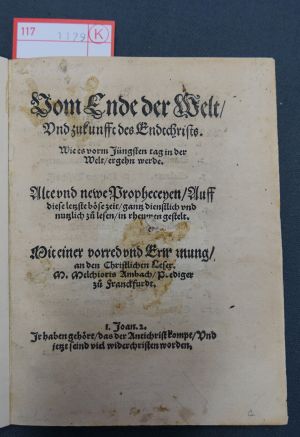 117
1179
K
Vom Ende der Welt/
Vnd zukunfft des Endtchrists.
Wie es vorm Jüngsten tag in der
Welt/ ergehn werde.
Alte vnd newe Propheceyen/ Auff
diese letzste böse zeit/ gantz dienstlich vnd
nutzlich zů lesen/ in rheymen gestelt.
Mit einer vorred vnd
an den Christlichen Leser.
M. Melchioris Ambach/
zů Franckfurdt.
1. Joan. 2.
Jr haben gehört/ das der Antichrist kompt/ Vnd
jetzt seind viel widerchristen worden.